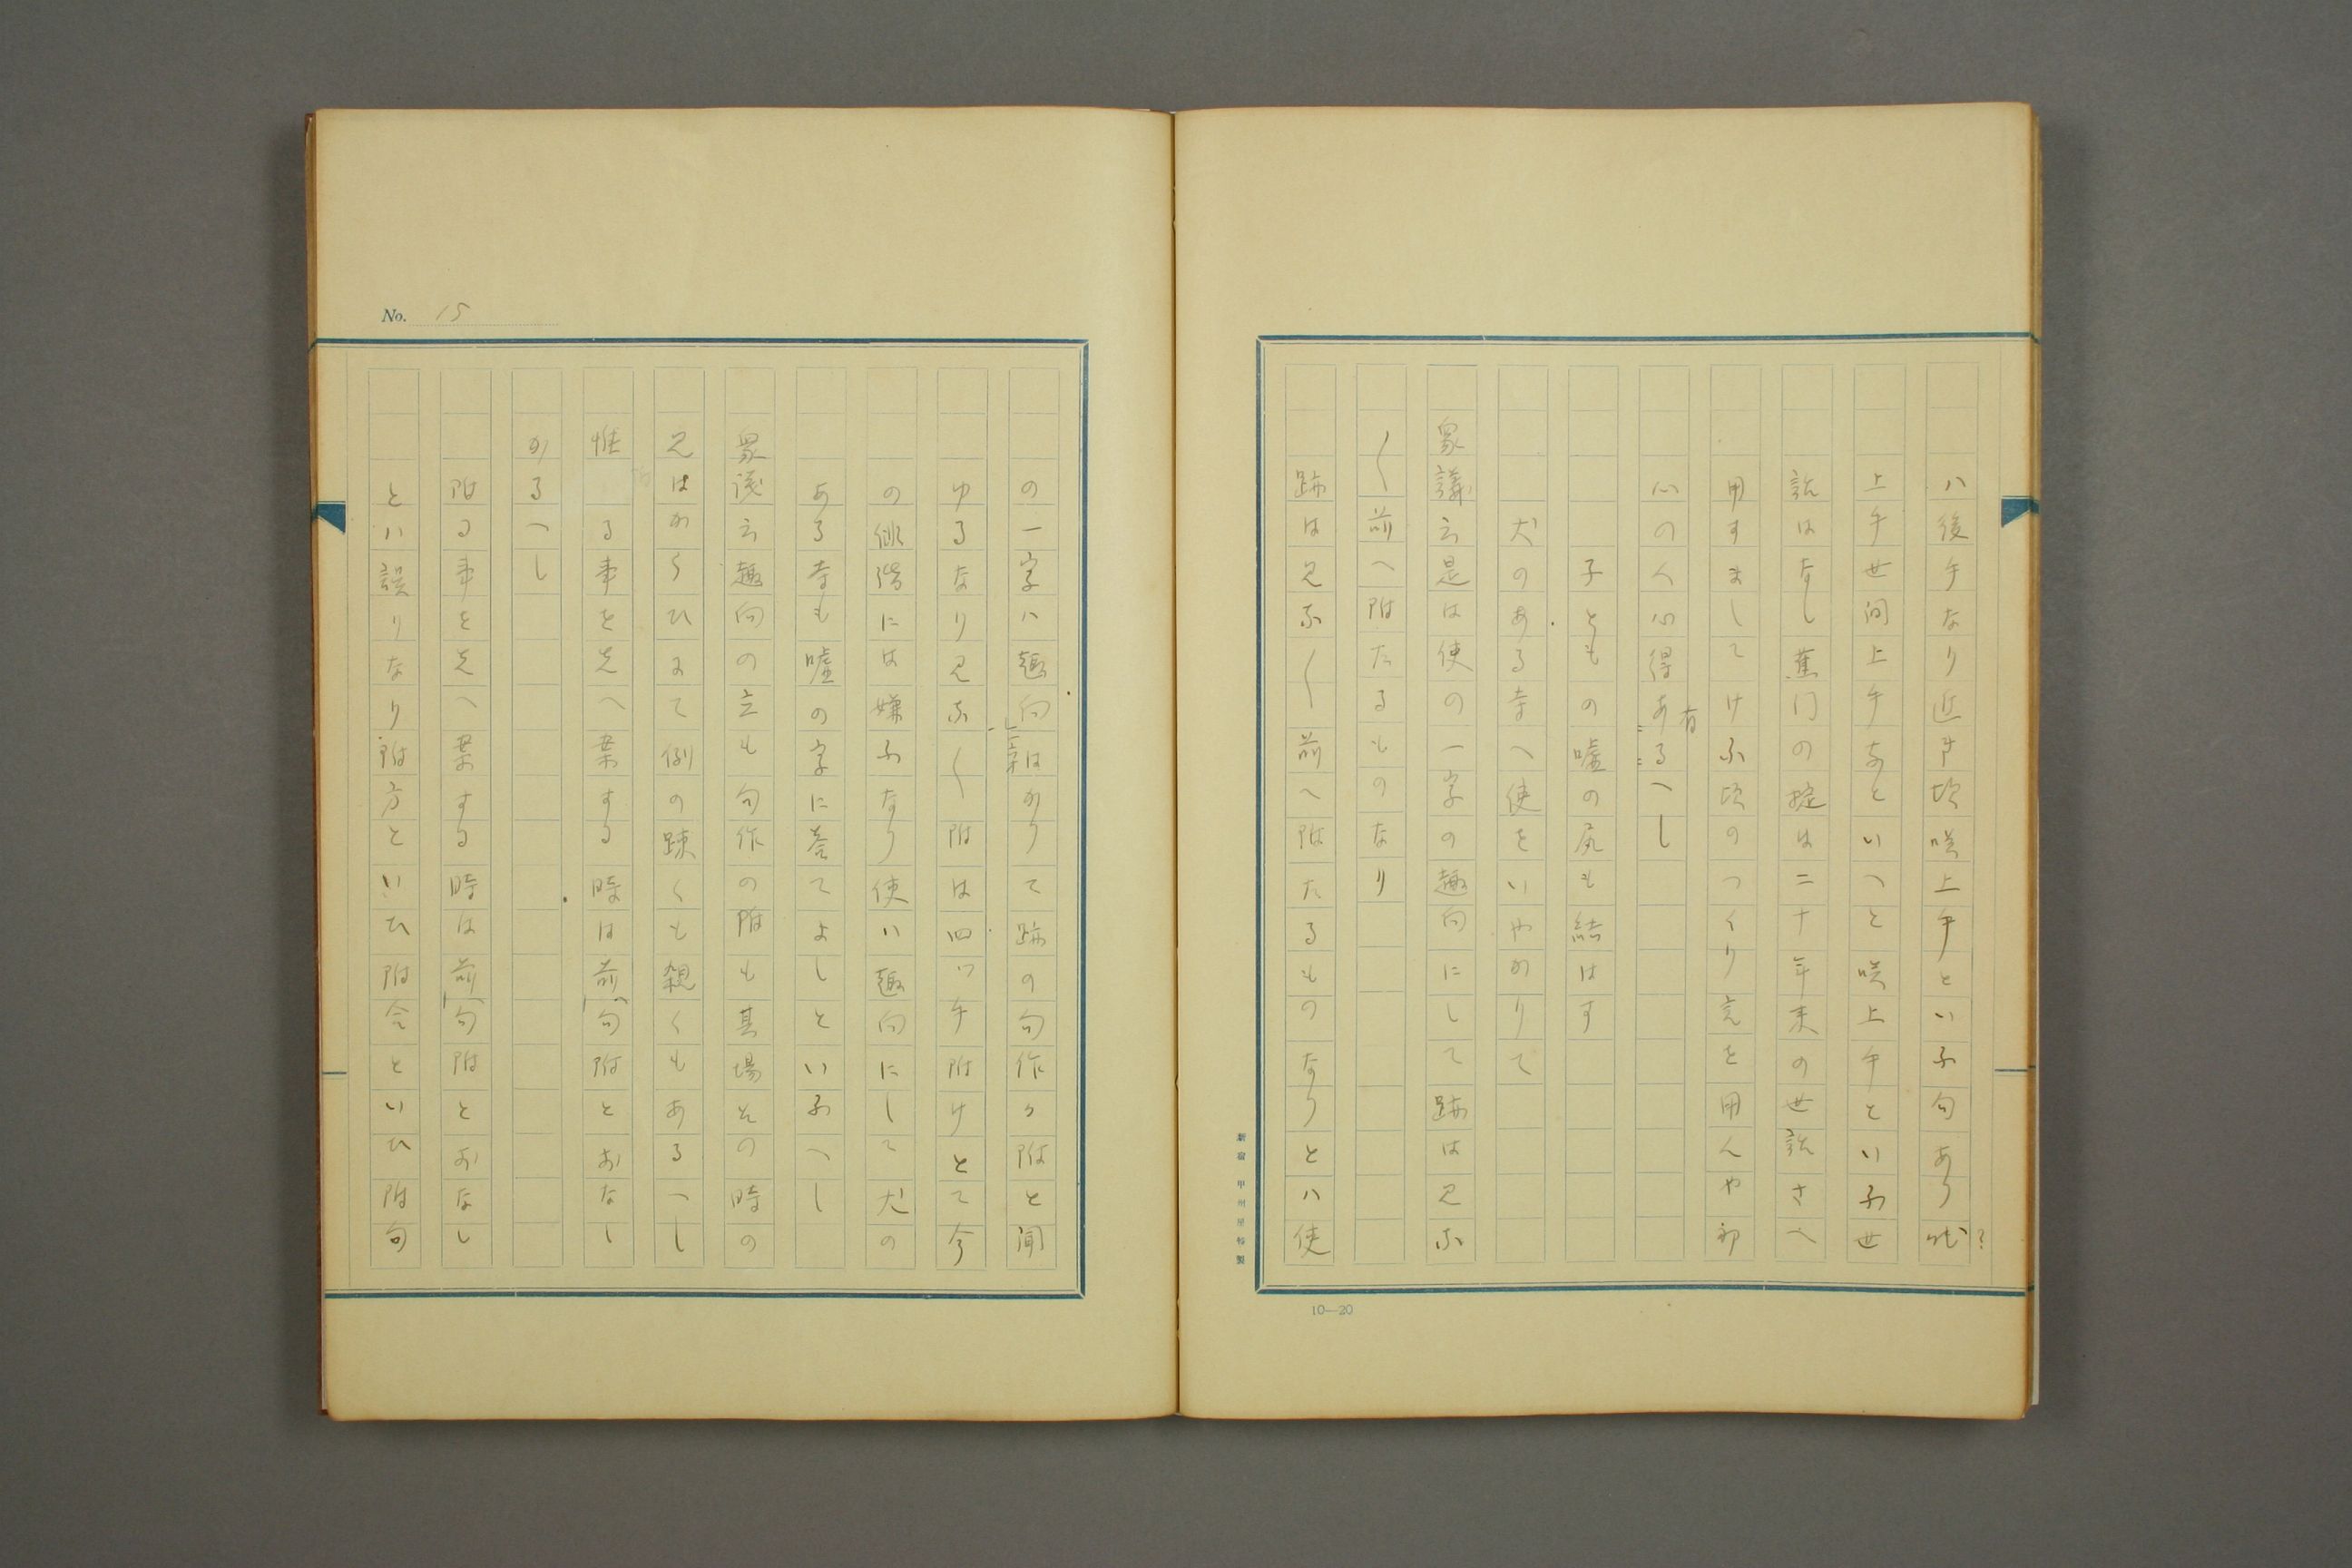 ハ後手なり近き頃咲上手といふ句あり
?
上手世間上手なといへと咲上手といふ世
説はなし蕉門の掟は二十年来の世説さへ
用すましてけふ頃のつくり言を用んや初
心の人心得あるへし
有
子ともの嘘の尻も結はす
犬のある寺へ使をいやかりて
衆議云是は使の一字の趣向にして跡は見ふ
〱前へ附たるものなり
跡は見ふ〱前へ附たるものなりとハ使
新宿 甲州屋特製
10—20
No. 15
の一字ハ趣向はかりて跡の句作か附と聞
ゆるなり見ふ〱附は四ツ手附けとて今
の俳諧には嫌ふなり使ハ趣向にして犬の
ある寺も嘘の字に答てよしといふへし
衆議云趣向の立も句作の附も其場その時の
見はからひにて例の疎くも親くもあるへし
惟 る事を先へ案する時は前句附とおなし
かるへし
附る事を先へ案する時は前句附とおなし
とハ誤りなり附方といひ附合といひ附句